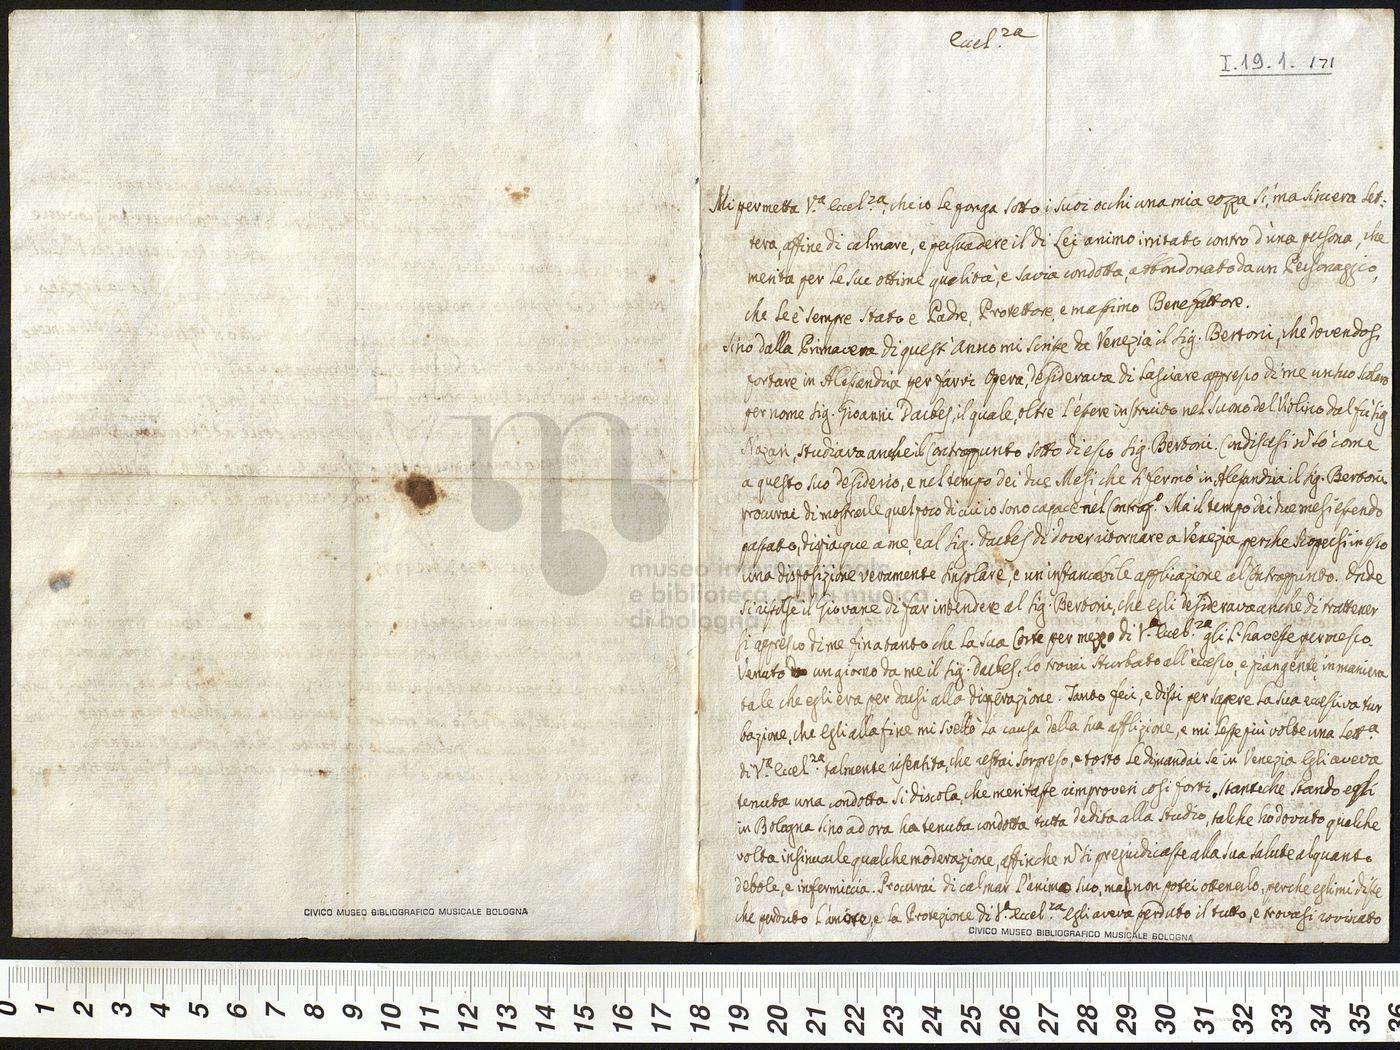 Eccel.za
I.19.1. 171
Mi permetta V.a Eccel.za, che io Le ponga sotto i suoi occhi una mia rozza sì, ma sincera Let-
tera, affine di calmare, e persuadere il di Lei animo irritato contro d'una persona, che
merita per le sue ottime qualità, e savia condotta, abbondonato da un Personaggio,
che le è sempre stato e Padre, Protettore, e massimo Benefattore.
Sino dalla Primavera di quest'Anno mi scrisse da Venezia il Sig. Bertoni, che dovendosi
portare in Alessandria per farvi Opera, desiderava di lasciare appresso di me un suo Scolaro
per nome Sig. Gioanni Dachesi, il quale, oltre l'essere instruito nel suono del Violino dal fù Sig
Nazari, studiava anche il Contrappunto sotto di esso Sig. Bertoni. Condiscesi come
a questo suo desiderio, e nel tempo dei due Mesi che si fermò in Alessandria il Sig. Bertoni
procurai di mostrarle quel poco di cui io sono capace nel Contrap.o Ma il tempo dei due mesi essendo
passato, dispiacque a me, e al Sig. di dover ritornare a Venezia perche scopersi in esso
una disposizione veramente singolare, e un'infancabile applicazione al Contrappunto. Onde
si risolse il Giovane di far intendere al Sig. Bertoni, che egli desiderava anche di trattener
si appresso di me fina tanto che la sua Corte per mezzo di V.a Eccel.za gli l'havesse permesso.
Venuto un giorno da me il Sig. lo trovai sturbato all'eccesso, e piangente in maniera
tale che egli era per darsi alla disperazione. Tanto feci, e dissi per sapere la sua eccessiva tur
bazione, che Egli alla fine mi svelò la causa della sua afflizione, e mi lesse più volte una Lett.a
di V.a Eccel.za talmente risentita, che restai sorpreso, e tosto Le dimandai se in Venezia Egli aveva
tenuta una condotta sì discola, che meritasse rimproveri così forti. Stante che stando egli
in Bologna sino ad ora ha tenuta condotta tutta dedita alla Studio, talche ho dovuto qualche
volta insinuarle qualche moderazione, affinche si prejudicasse alla sua salute alquanto
debole, e infermiccia. Procurai di calmar l'animo suo, ma non potei ottenerlo, perche egli mi disse
che perduto l'amore, e la Protezione di V.a Eccel.za Egli aveva perduto il tutto, e trovasi rovinato
CIVICO MUSEO BIBLIOGRAFICO MUSICALE BOLOGNA
CIVICO MUSEO BIBLIOGRAFICO MUSICALE BOLOGNA
museo internazionale
e biblioteca della musica
di bologna
0 1 2 3 4 5 6 7 8 9 10 11 12 13 14 15 16 17 18 19 20 21 22 23 24 25 26 27 28 29 30 31 32 33 34 35 36